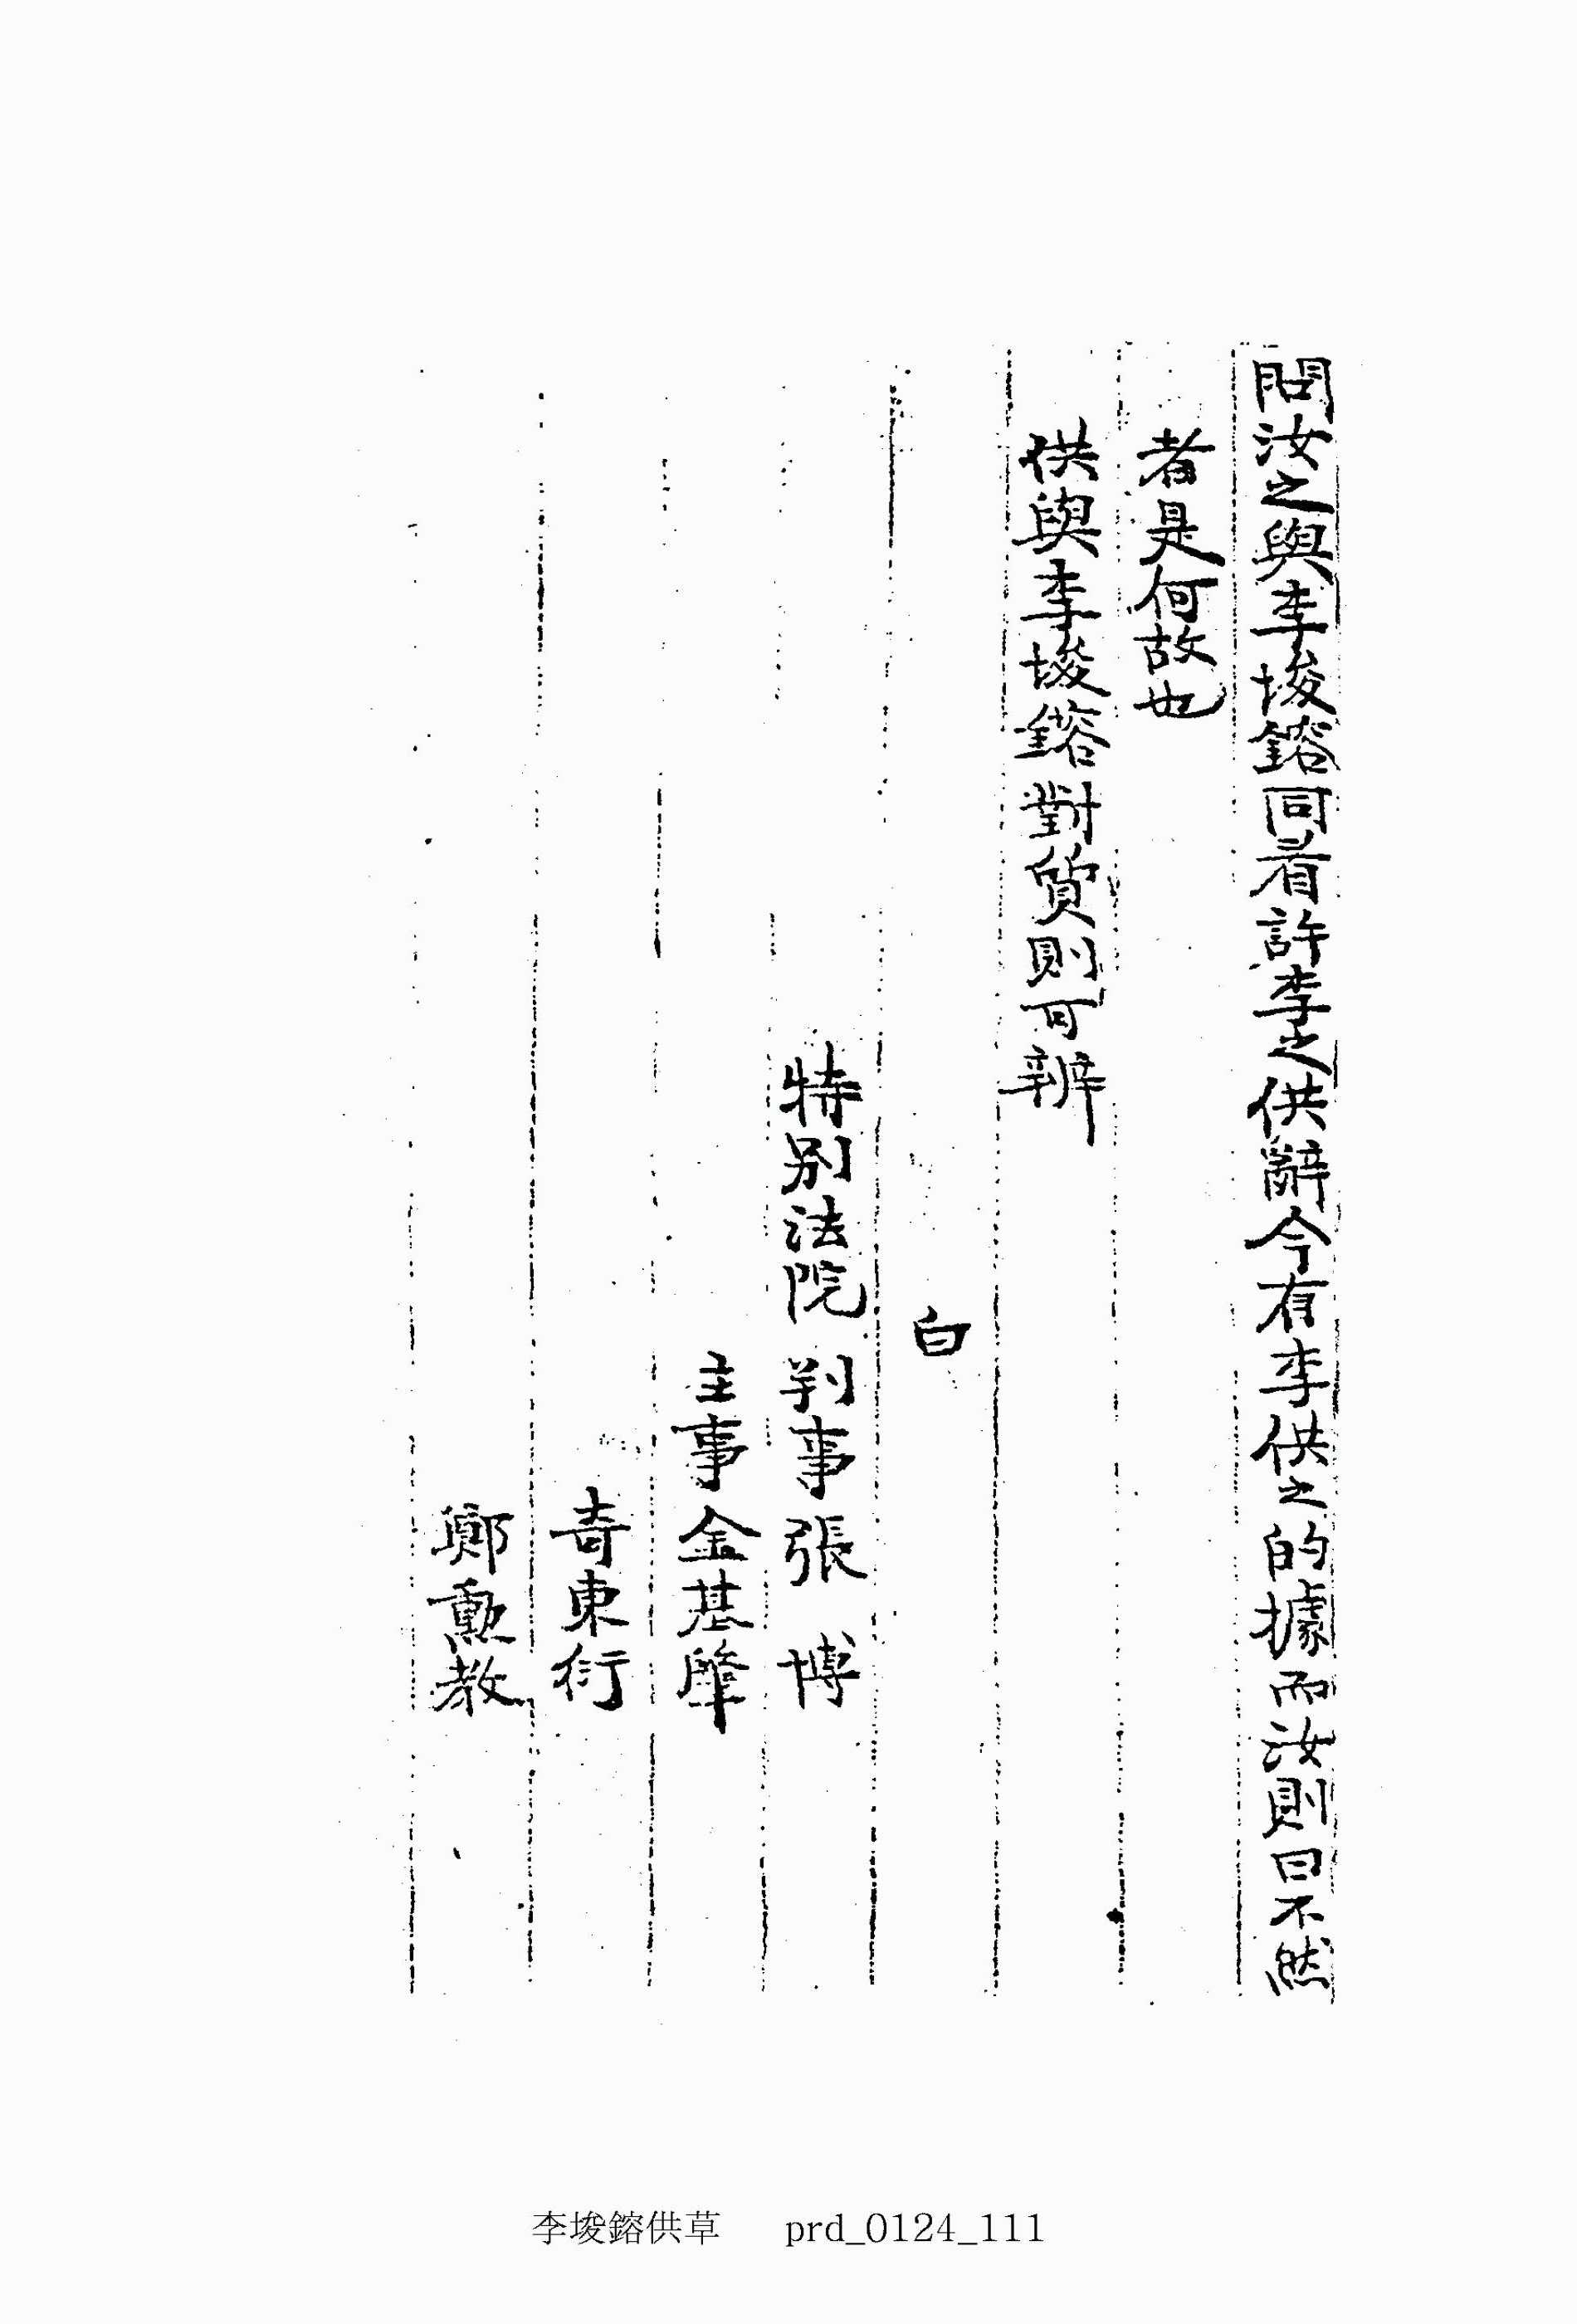 問汝之與李埈鎔同看許李之供辭今有李供之的據而汝則曰不然
者是何故也
供與李埈鎔對質則可辨
白
特別法院 判事 張 博
主事 金基肇
奇東衍
鄭勳教
李埈鎔供草 prd_0124_111